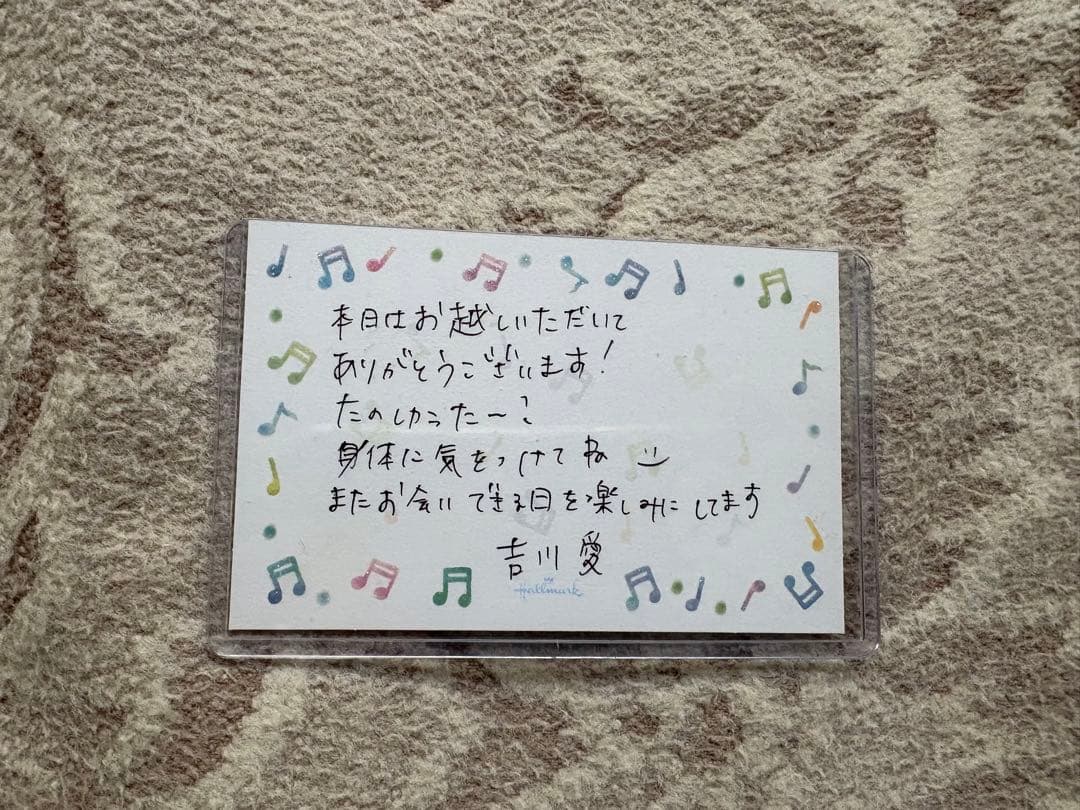 本日はお越しいただいて
ありがとうございます!
たのしかった〜?
身体に気をつけてね
またお会いできる日を楽しみにしてます
吉川 愛
Hallmark